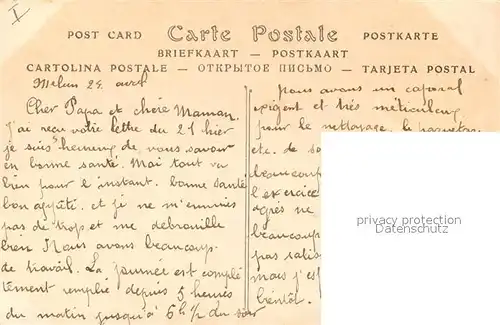 I
POST CARD Carte Postale POSTKARTE
BRIEFKAART — POSTKAART
CARTOLINA POSTALE — ОТКРЫТОЕ ПИСЬМО — TARJETA POSTAL
Melun 24 avril
Cher Papa et chère Maman.
J'ai reçu votre lettre du 21 hier
je suis heureux de vous savoir
en bonne santé. Moi tout va
bien pour l'instant. bonne santé
bon appétit. et je ne m'ennuies
pas de trop et me debrouille
bien Nous avons beaucoup
de travail. La journée est complè
tement remplie depuis 5 heures
du matin jusqu'à 6h 1/2 du soir
nous avons un caporal
exigent et très méticuleux
pour le nettoyage. le paquetage
etc. de
beaucoup
l'exercice
après ne
beaucoup
pas satis
mais j'es
bientôt.
privacy protection
Datenschutz